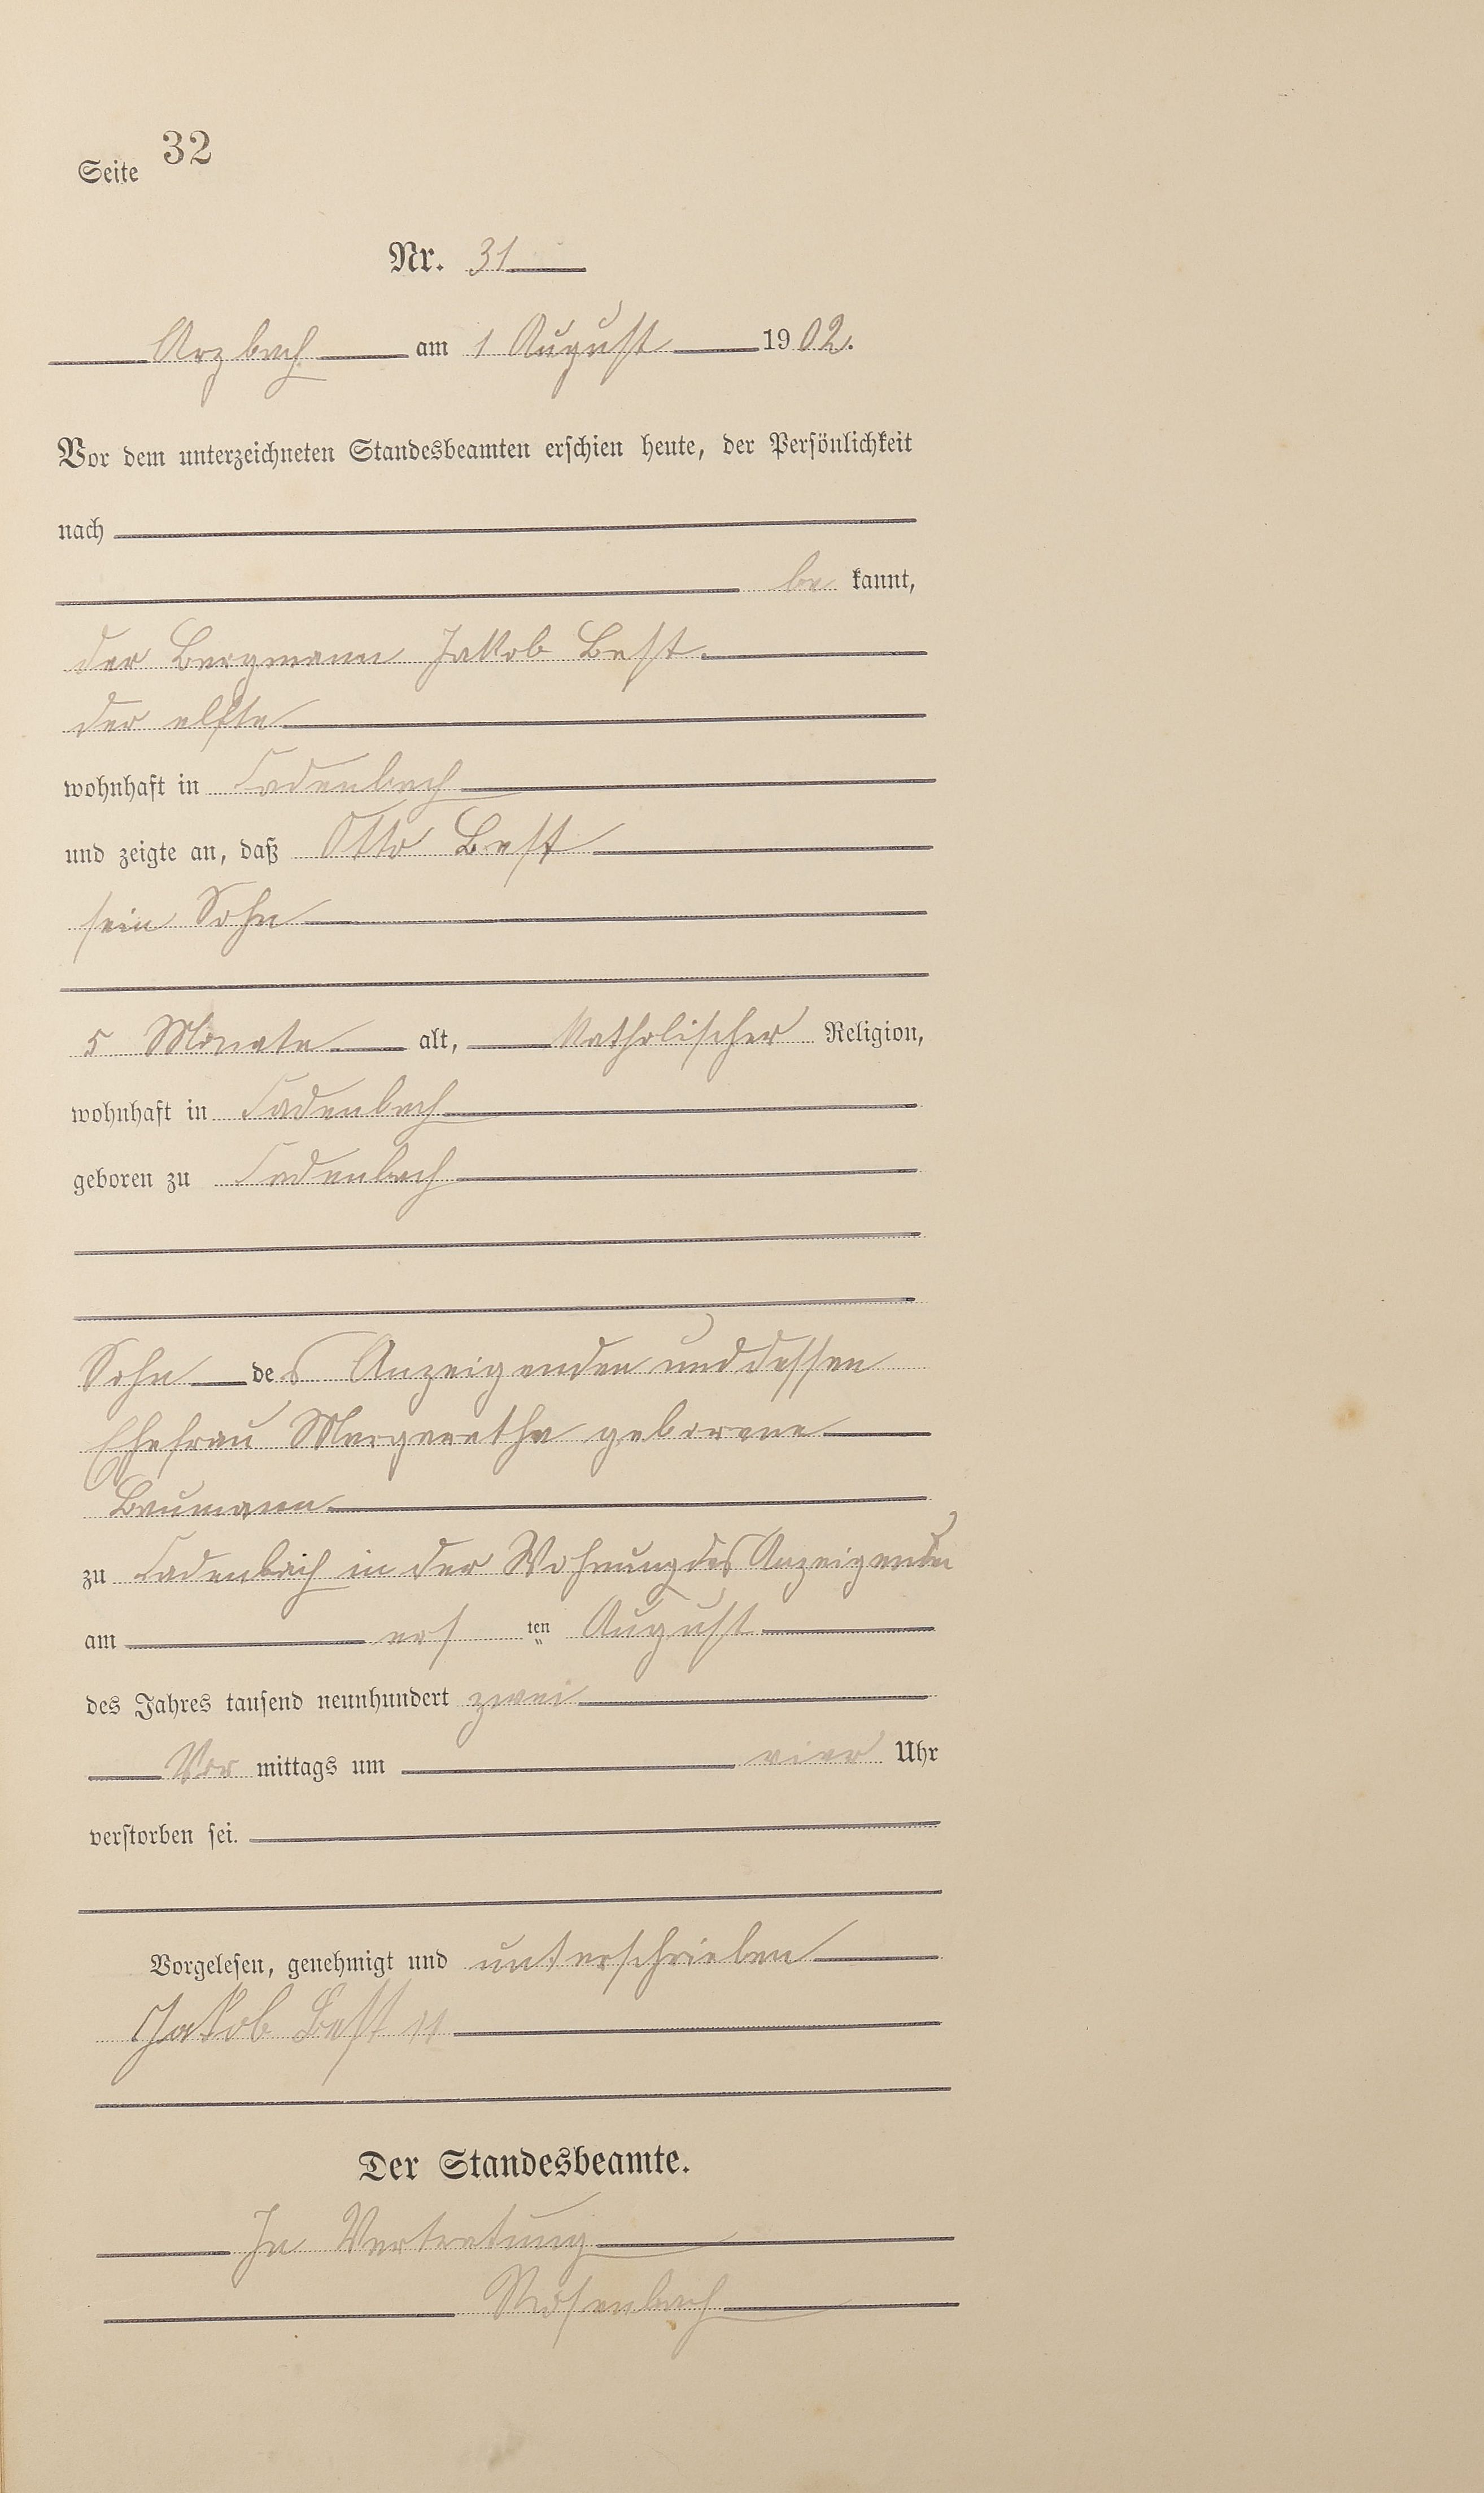 Seite 32
Nr. 31
Arzbach am 1 August 1902.
Vor dem unterzeichneten Standesbeamten erschien heute, der Persönlichkeit
nach
be kannt,
der Bergmann Jakob Best
der elfte
wohnhaft in Cadenbach
und zeigte an, daß Otto Best
sein Sohn
5 Monate alt, katholischer Religion,
wohnhaft in Cadenbach
geboren zu Cadenbach
Sohn des Anzeigenden und dessen
Ehefrau Margaretha geborene
Baumann
zu Cadenbach in der Wohnung des Anzeigenden
am ers ten August
des Jahres tausend neunhundert zwei
Vor mittags um vier Uhr
verstorben sei.
Vorgelesen, genehmigt und unterschrieben
Jakob Best 11
Der Standesbeamte.
In Vertretung